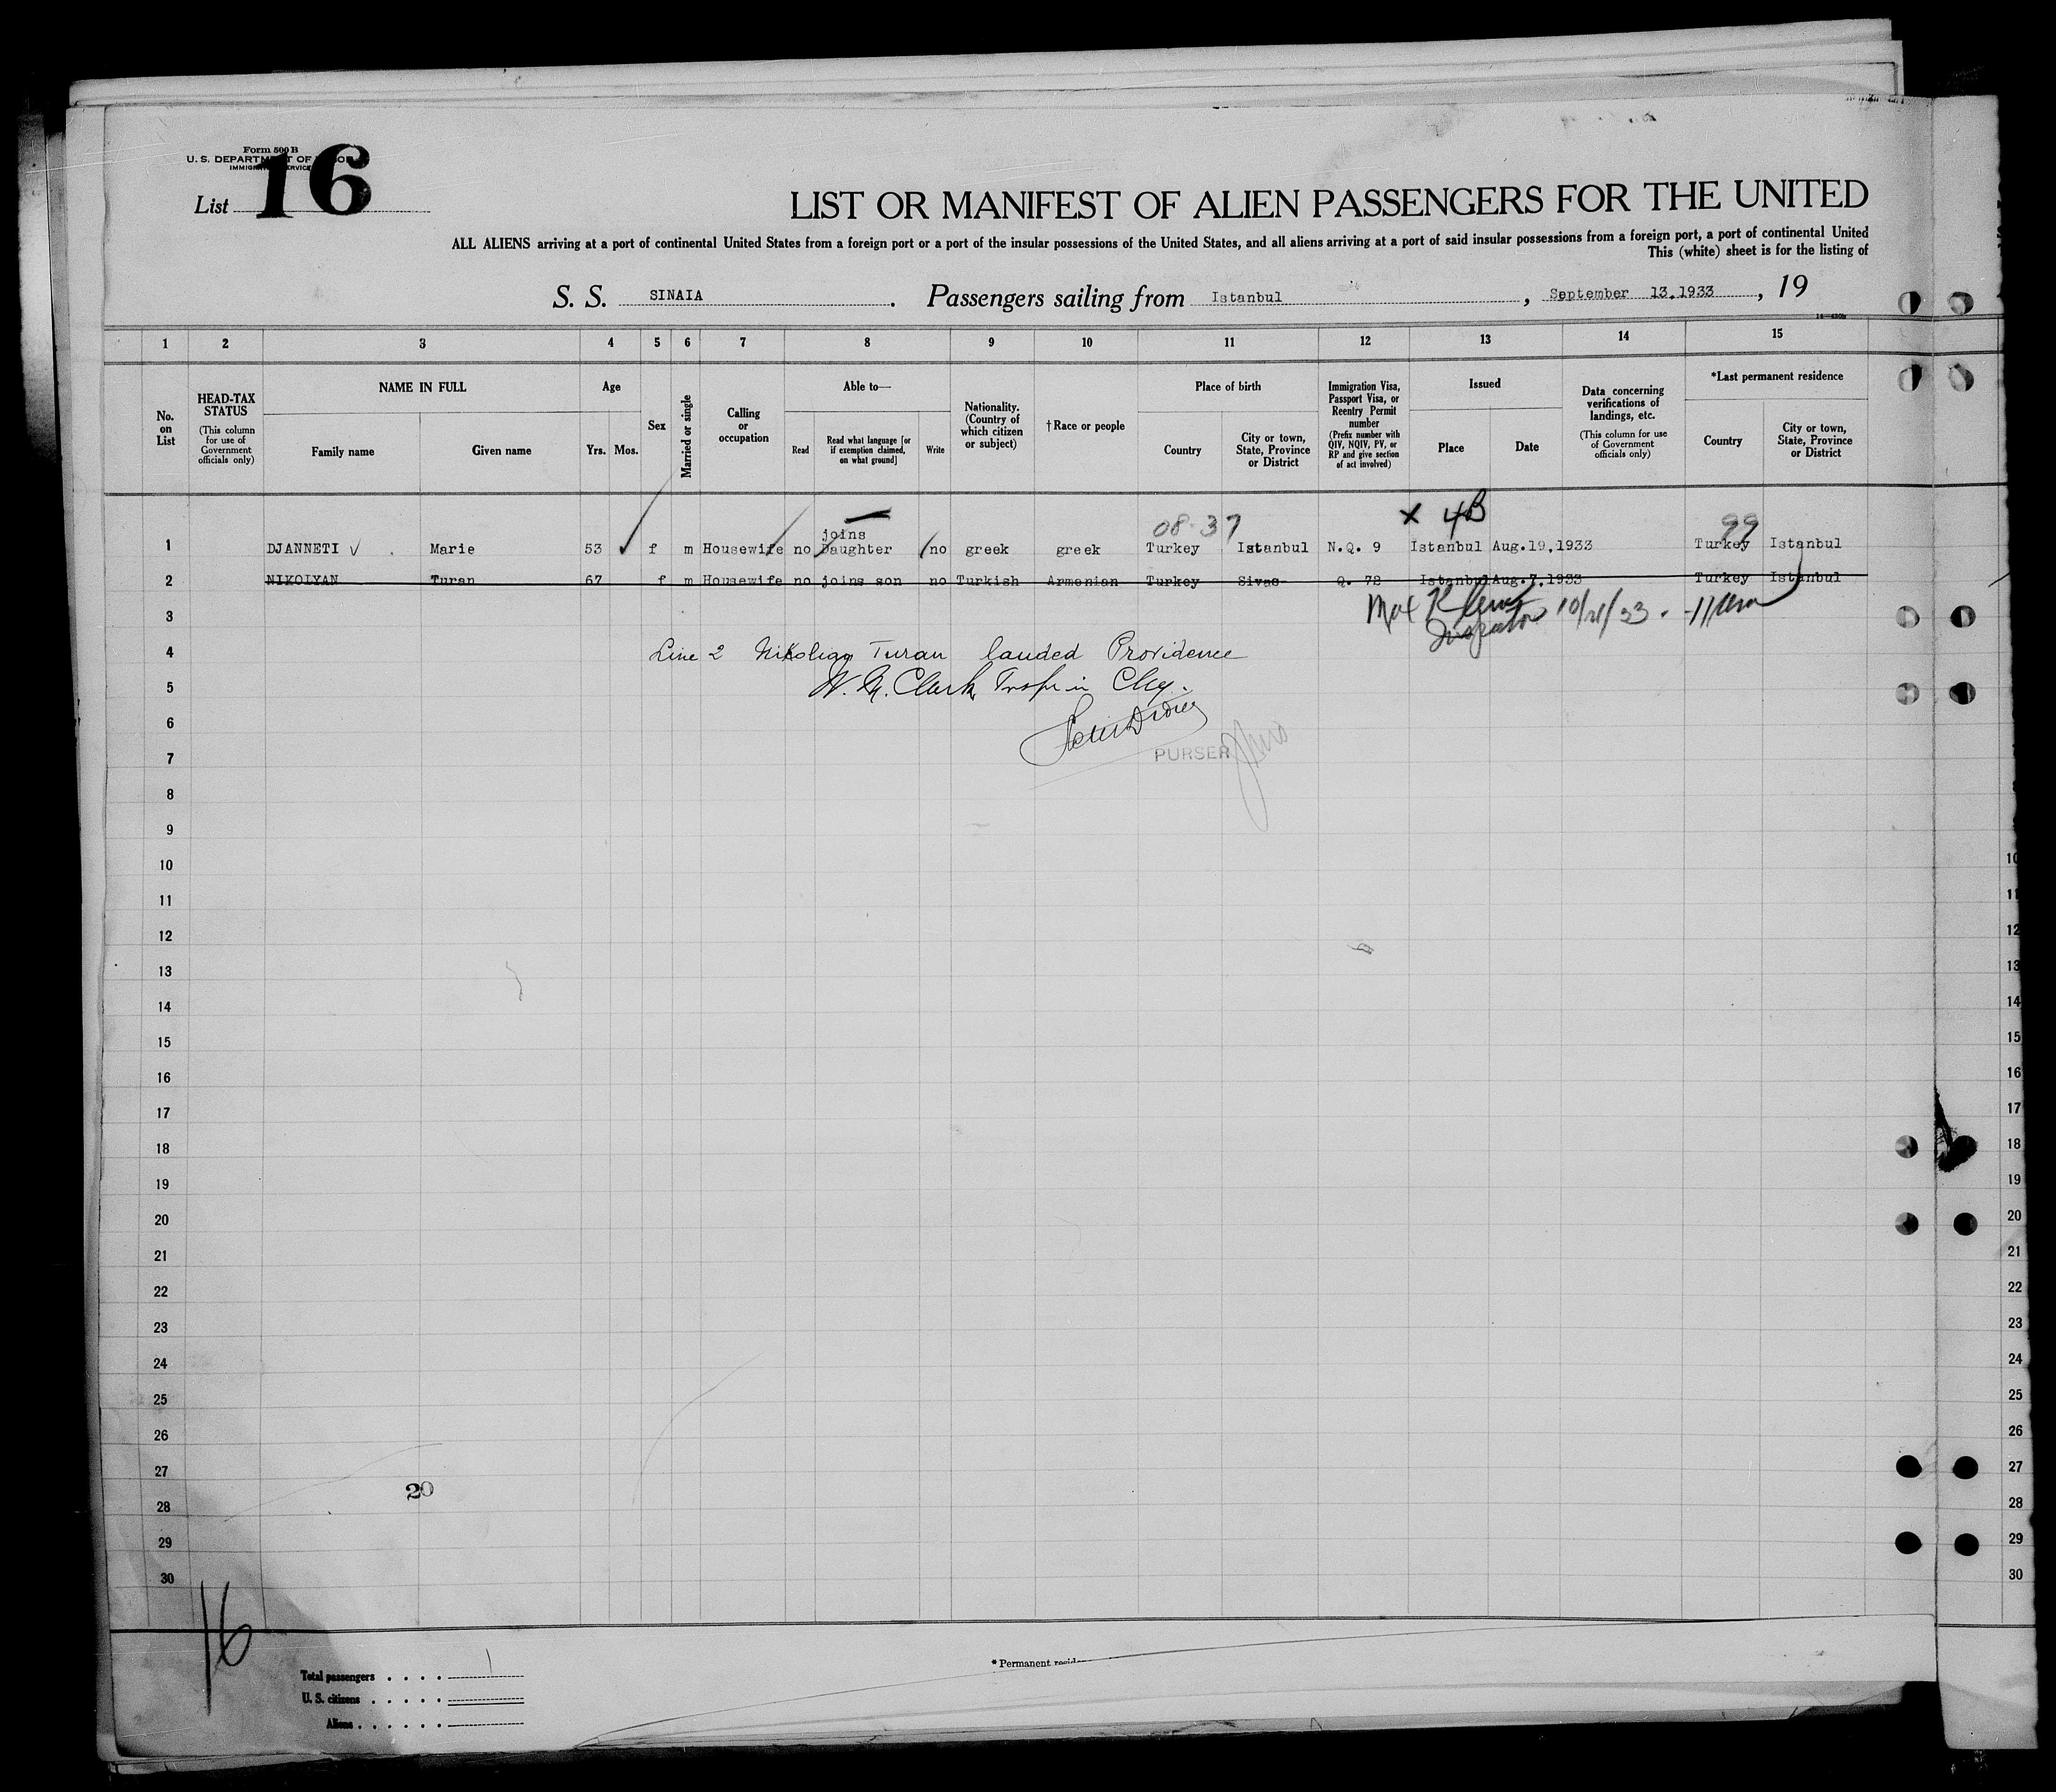 Form 500 B
U. S. DEPARTMENT OF LABOR
IMMIGRATION SERVICE
List 16
LIST OR MANIFEST OF ALIEN PASSENGERS FOR THE UNITED
ALL ALIENS arriving at a port of continental United States from a foreign port or a port of the insular possessions of the United States, and all aliens arriving at a port of said insular possessions from a foreign port, a port of continental United
This (white) sheet is for the listing of
S. S. SINAIA. Passengers sailing from Istanbul, September 13.1933, 19
1 2 3 4 5 6 7 8 9 10 11 12 13 14 15
No. on List
HEAD-TAX STATUS (This column for use of Government officials only)
NAME IN FULL
Family name
Given name
Age
Yrs. Mos.
Sex
Married or single
Calling or occupation
Able to—
Read
Read what language [or if exemption claimed, on what ground]
Write
Nationality. (Country of which citizen or subject)
†Race or people
Place of birth
Country
City or town, State, Province or District
Immigration Visa, Passport Visa, or Reentry Permit number (Prefix number with QIV, NQIV, PV, or RP and give section of act involved)
Issued
Place
Date
Data concerning verifications of landings, etc. (This column for use of Government officials only)
*Last permanent residence
Country
City or town, State, Province or District
x 4B
08-37
99
joins
1 DJANNETI Marie 53 f m Housewife no Daughter no greek greek Turkey Istanbul N.Q. 9 Istanbul Aug.19,1933 Turkey Istanbul
2 NIKOLYAN Turan 67 f m Housewife no joins son no Turkish Armenian Turkey Sivas Q. 72 Istanbul Aug.7.1933 Turkey Istanbul
3
Inspector
4 Line 2 Nikolian Turan landed Providence
5 Clark
6
7 PURSER
8
9
10
11
12
13
14
15
16
17
18
19
20
21
22
23
24
25
26
27
20
28
29
30
16
Total passengers . . . . 1
U. S. citizens . . . . .
Aliens . . . . . .
* Permanent